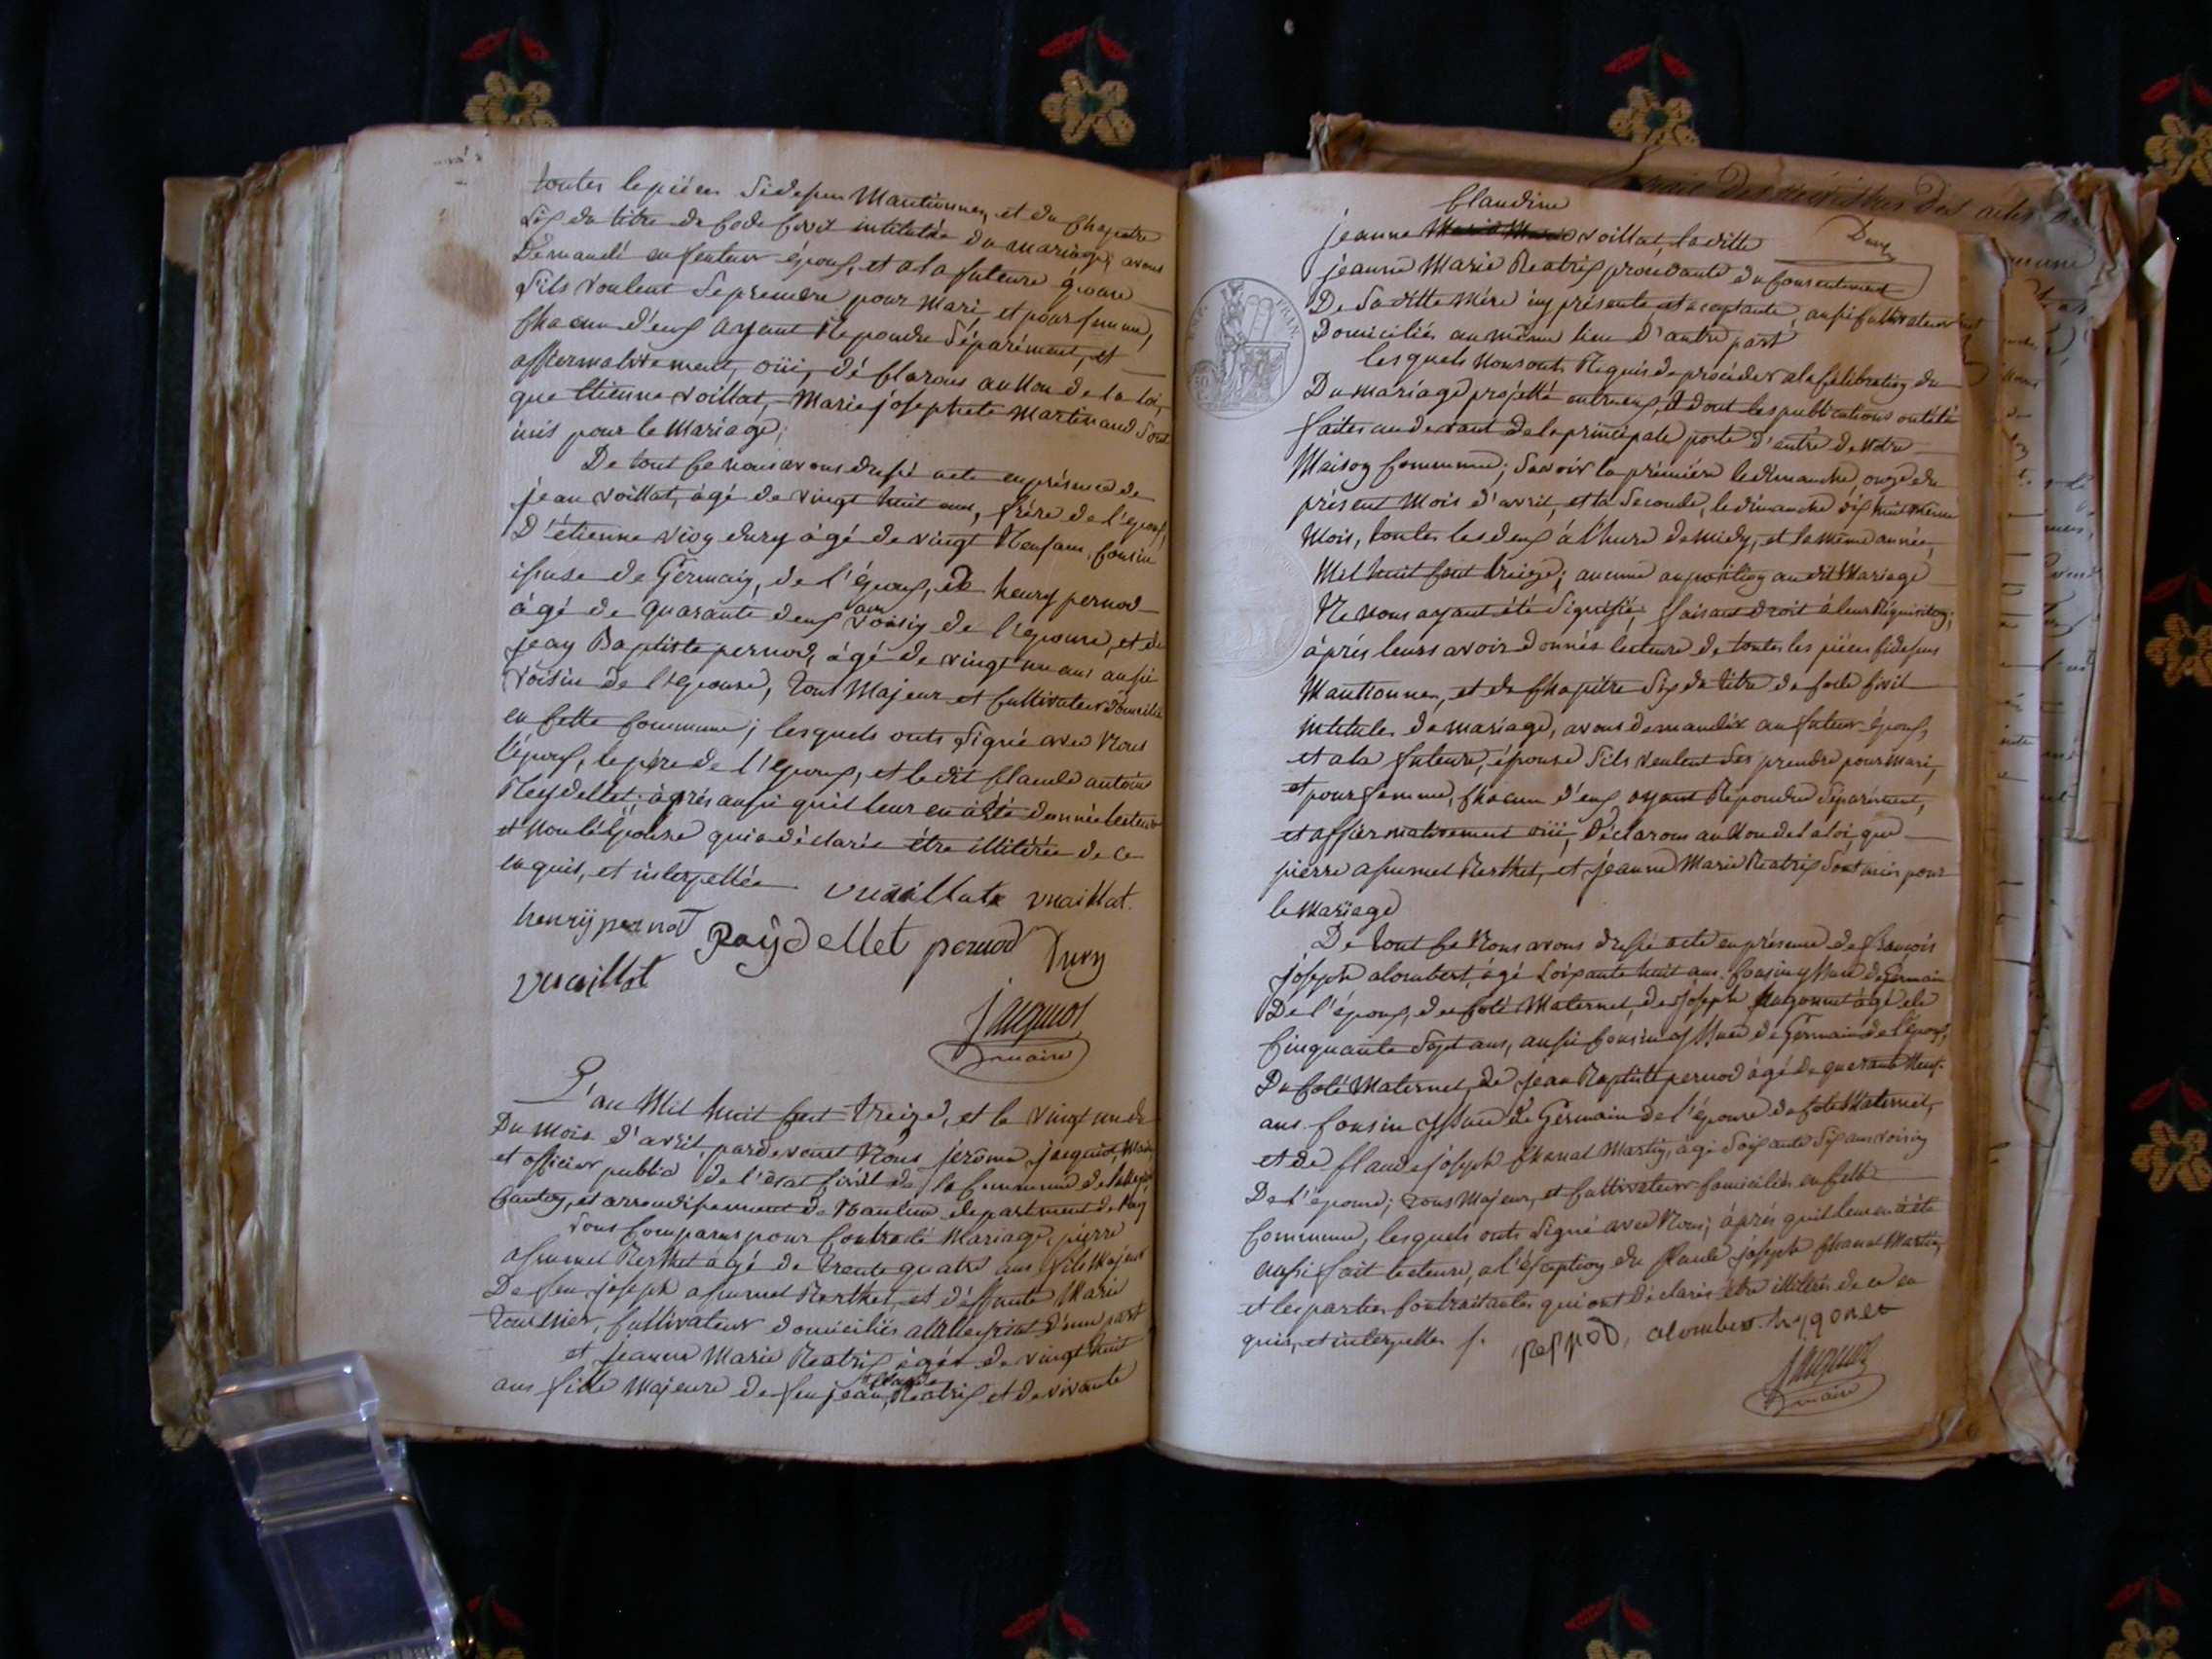 toutes les pièces sidesus Mantionnez, et du chapitre
six du titre du Code Civil intitulée du mariage; avons
Demandé au futeur époux, et a la futeure épouse
s'ils veulent se prendre pour mari et pour femme,
chacun d'eux ayant Repondre séparément, et
affiermativement, oüi, déclarons au Nom de la loi,
que Etienne Voillat, Marie josephete Martinand sont
unis pour le Mariage;
De tout ce nous avons dressé acte en présence de
jean Voillat, âgé de vingt huit ans, frère de l'époux,
D'étienne dury âgé de vingt Neuf ans, cousin
issuse de Germain, de l'époux, de henry pernod
âgé de quarante deux ans voisin de l'épouse, et de
jean Baptiste pernod, âgé de vingt un ans aussi
voisin de l'épouse, tous Majeur et cultivateur domicilié
en cette commune; lesquels onts signé avec Nous
l'époux, le père de l'époux, et ledit claude antoine
Reydellet; après aussi quil leur en à été donnée lecteure
et non l'épouse qui a déclarée être illitérée de ce
enquis, et interpellée vuaillat vuaillat.
henry pernod Reÿdellet pernod Dury
vuaillat
jaquiot
maire
L'an Mil huit cent treize, et le vingt un du
Du mois d'avril, pardevant Nous jerôme jaquiot, Maire
et officier public de l'état civil de la Commune de
Canton, et arrondissement de Nantua, departement de l'ain
sont comparus pour contracté Mariage, pierre
Berthet âgé de trente quatre ans fils Majeur
De feu joseph Berthet, et d'effunte Marie
tournier, cultivateur domiciliés d'une part
et jeanne Marie Beatrix âgée de vingt huit
claude
ans fille Majeure de feu jean Beatrix et de vivante
claudine
jeanne voillat, laditte
jeanne Marie Beatrix procédante du consentement
De sa ditte mère icy présente et aceptante, aussi cultivateur
Domiciliés au même lieu d'autre part
lesquels nous onts Requis de procéder a la célébration du
Du mariage projetté entre eux, et dont les publications ont été
faites au devant de la principale porte d'entré de Notre
Maison Commune; savoir la première le dimanche, onze du
présent mois d'avril, et la seconde, le dimanche dix huit même
mois, toutes les deux à l'heure de midy, et la même année,
Mil huit cent treize; aucune oppositiong au dit Mariage
Ne nous ayant été signifié, faisant droit à leur Réquisition;
après leurs avoir donnés lecteure de toutes les pièces sidesus
Mantionnez, et du chapitre six du titre du code civil
intitulés du mariage, avons demandéz au futeur époux,
et a la futeure, épouse s'ils veulent ses prendre pour mari,
et pour femme, chacun d'eux ayant Répondre séparément,
et affiermativement oüi, déclarons au Nom de la loi, que
pierre Berthet, et jeanne Marie Beatrix sont unis pour
le mariage
De tout ce Nous avons dressé acte en présence de françois
joseph alombert, âgé soixante huit ans. cousin issue de Germain
De l'époux, du coté Maternel, de joseph âgé de
cinquante sept ans, aussi cousin issue de Germain de l'époux,
Du coté Maternel, de jean Baptiste pernod âgé de quarante Neuf.
ans. cousin issue de Germain de l'épouse du coté Maternel,
et de claude joseph Chanal Martin, âgé soixante six ans voisin
De l'épouse; tous Majeur, et cultivateur domiciliés en cette
commune, lesquels onts signé avec Nous; après quil leur en à été
aussi fait lecteure, a l'éxception du claude joseph Chanal Martin,
et les parties contraitantes qui ont déclarés être illitérés de ce en
quis, et interpellés /. pernod, alombert
jaquiot
maire